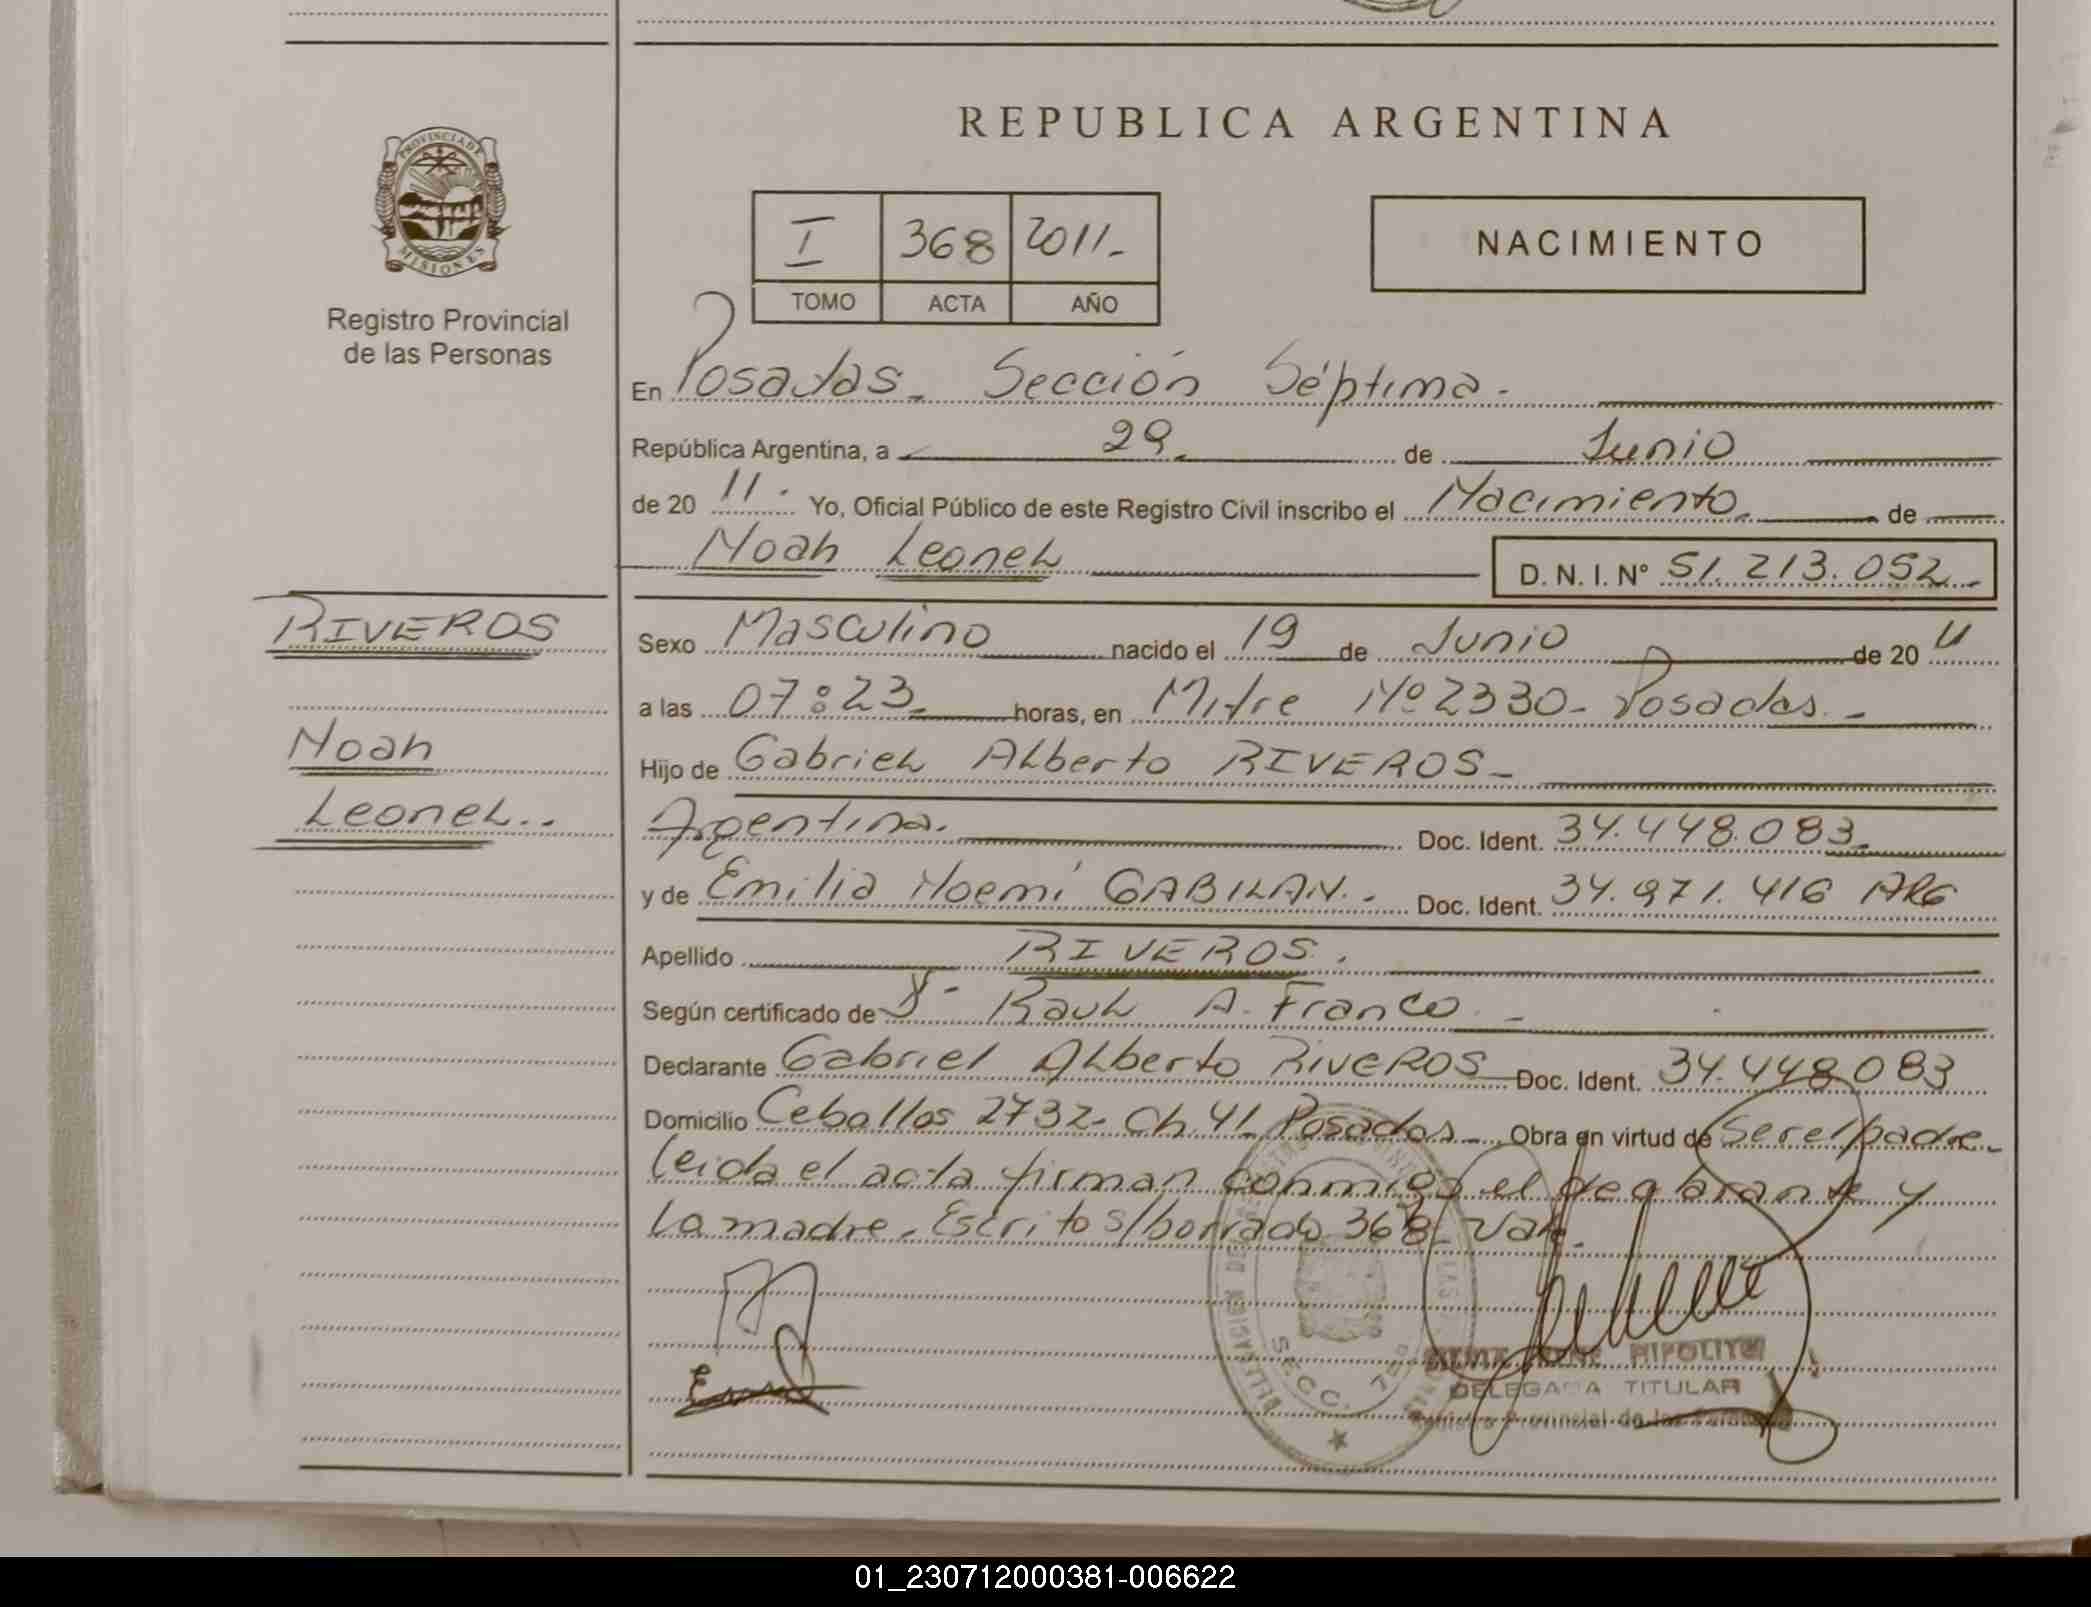 PROVINCIA DE
MISIONES
Registro Provincial
de las Personas
REPUBLICA ARGENTINA
I 368 2011.-
TOMO ACTA AÑO
NACIMIENTO
En Posadas.- Sección Séptima.-
República Argentina, a 29.- de Junio
de 20 11.- Yo, Oficial Público de este Registro Civil inscribo el Nacimiento.- de
Noah Leonel D. N. I. Nº 51.213.052.-
RIVEROS
Noah
Leonel..
Sexo Masculino nacido el 19 de Junio de 20 11
a las 07:23.- horas, en Mitre Nº 2330- Posadas.-
Hijo de Gabriel Alberto RIVEROS.-
Argentina.- Doc. Ident. 34.448.083.-
y de Emilia Noemí GABILAN.- Doc. Ident. 34.971.416 ARG
Apellido RIVEROS.
Según certificado de Raul A. Franco.-
Declarante Gabriel Alberto RIVEROS Doc. Ident. 34.448083
Domicilio Ceballos 2732- Ch.41 Posados.- Obra en virtud de Ser el padre.-
leida el acta firman conmigo el declarante y
la madre. Escrito s/borrado 368- Vale.-
SECC. 7
HIPOLITO
DELEGADA TITULAR
Registro Provincial de las Personas
01_230712000381-006622